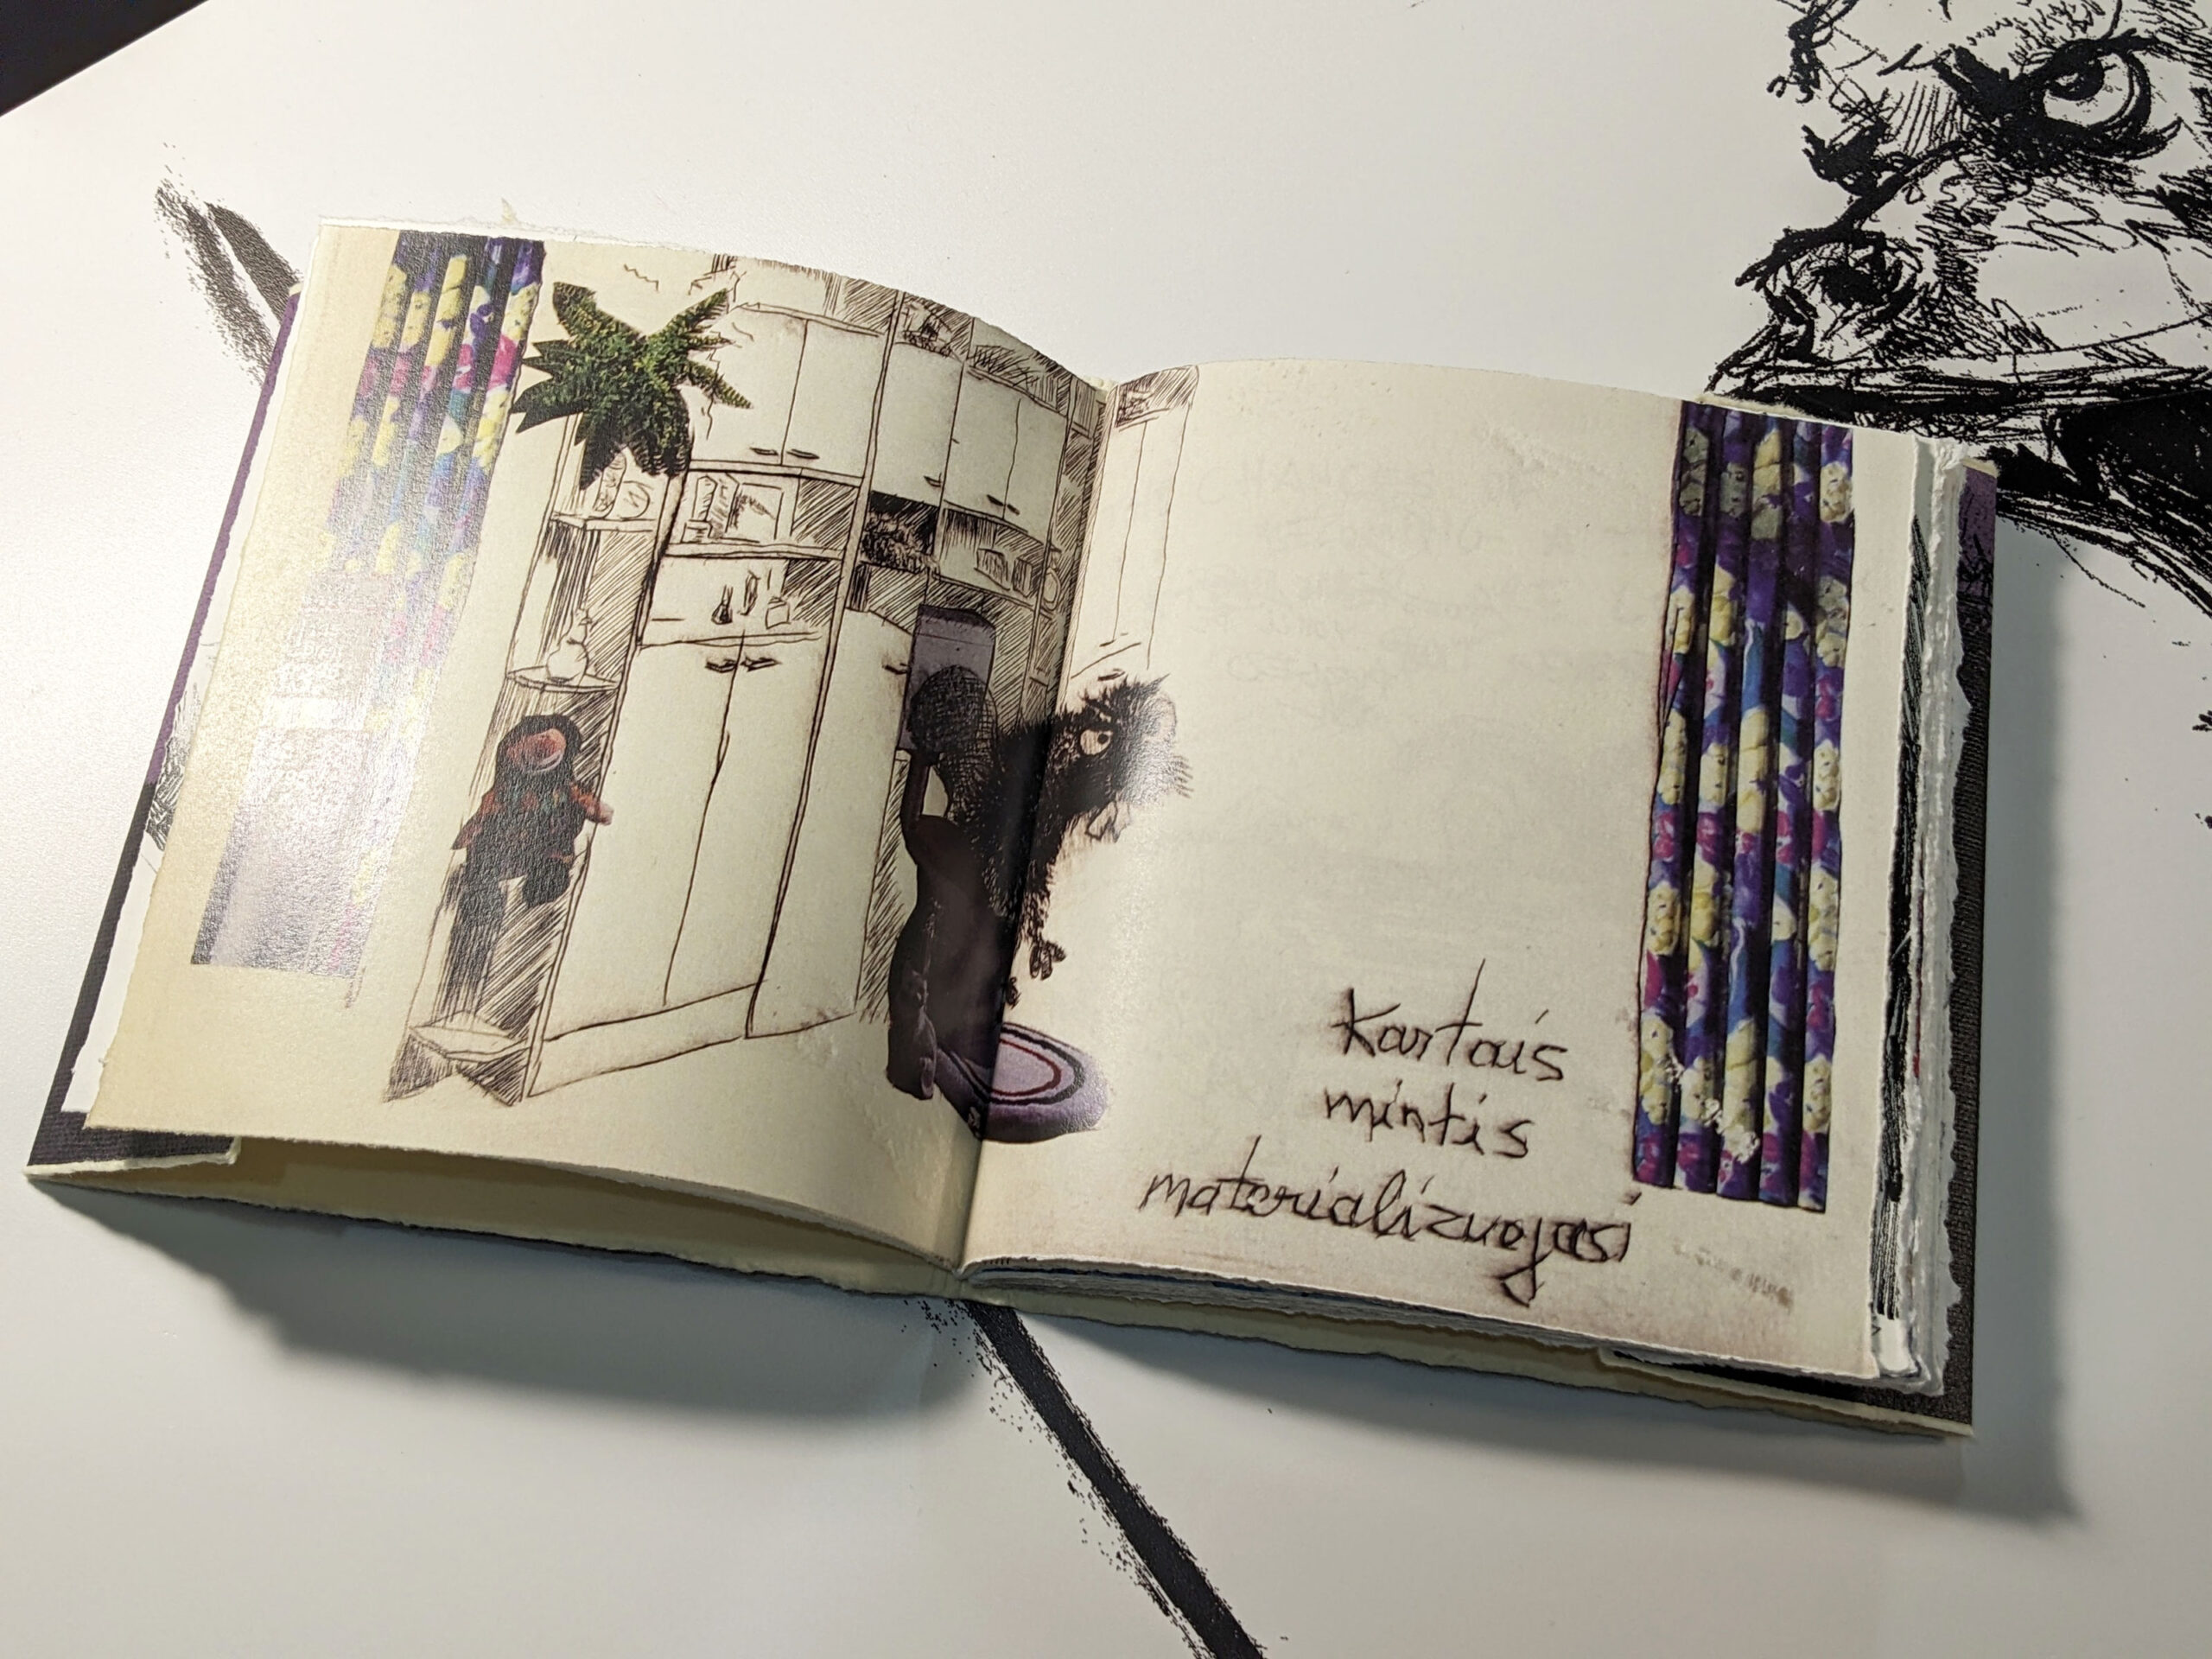 Kartais
mintis
materializuojasi